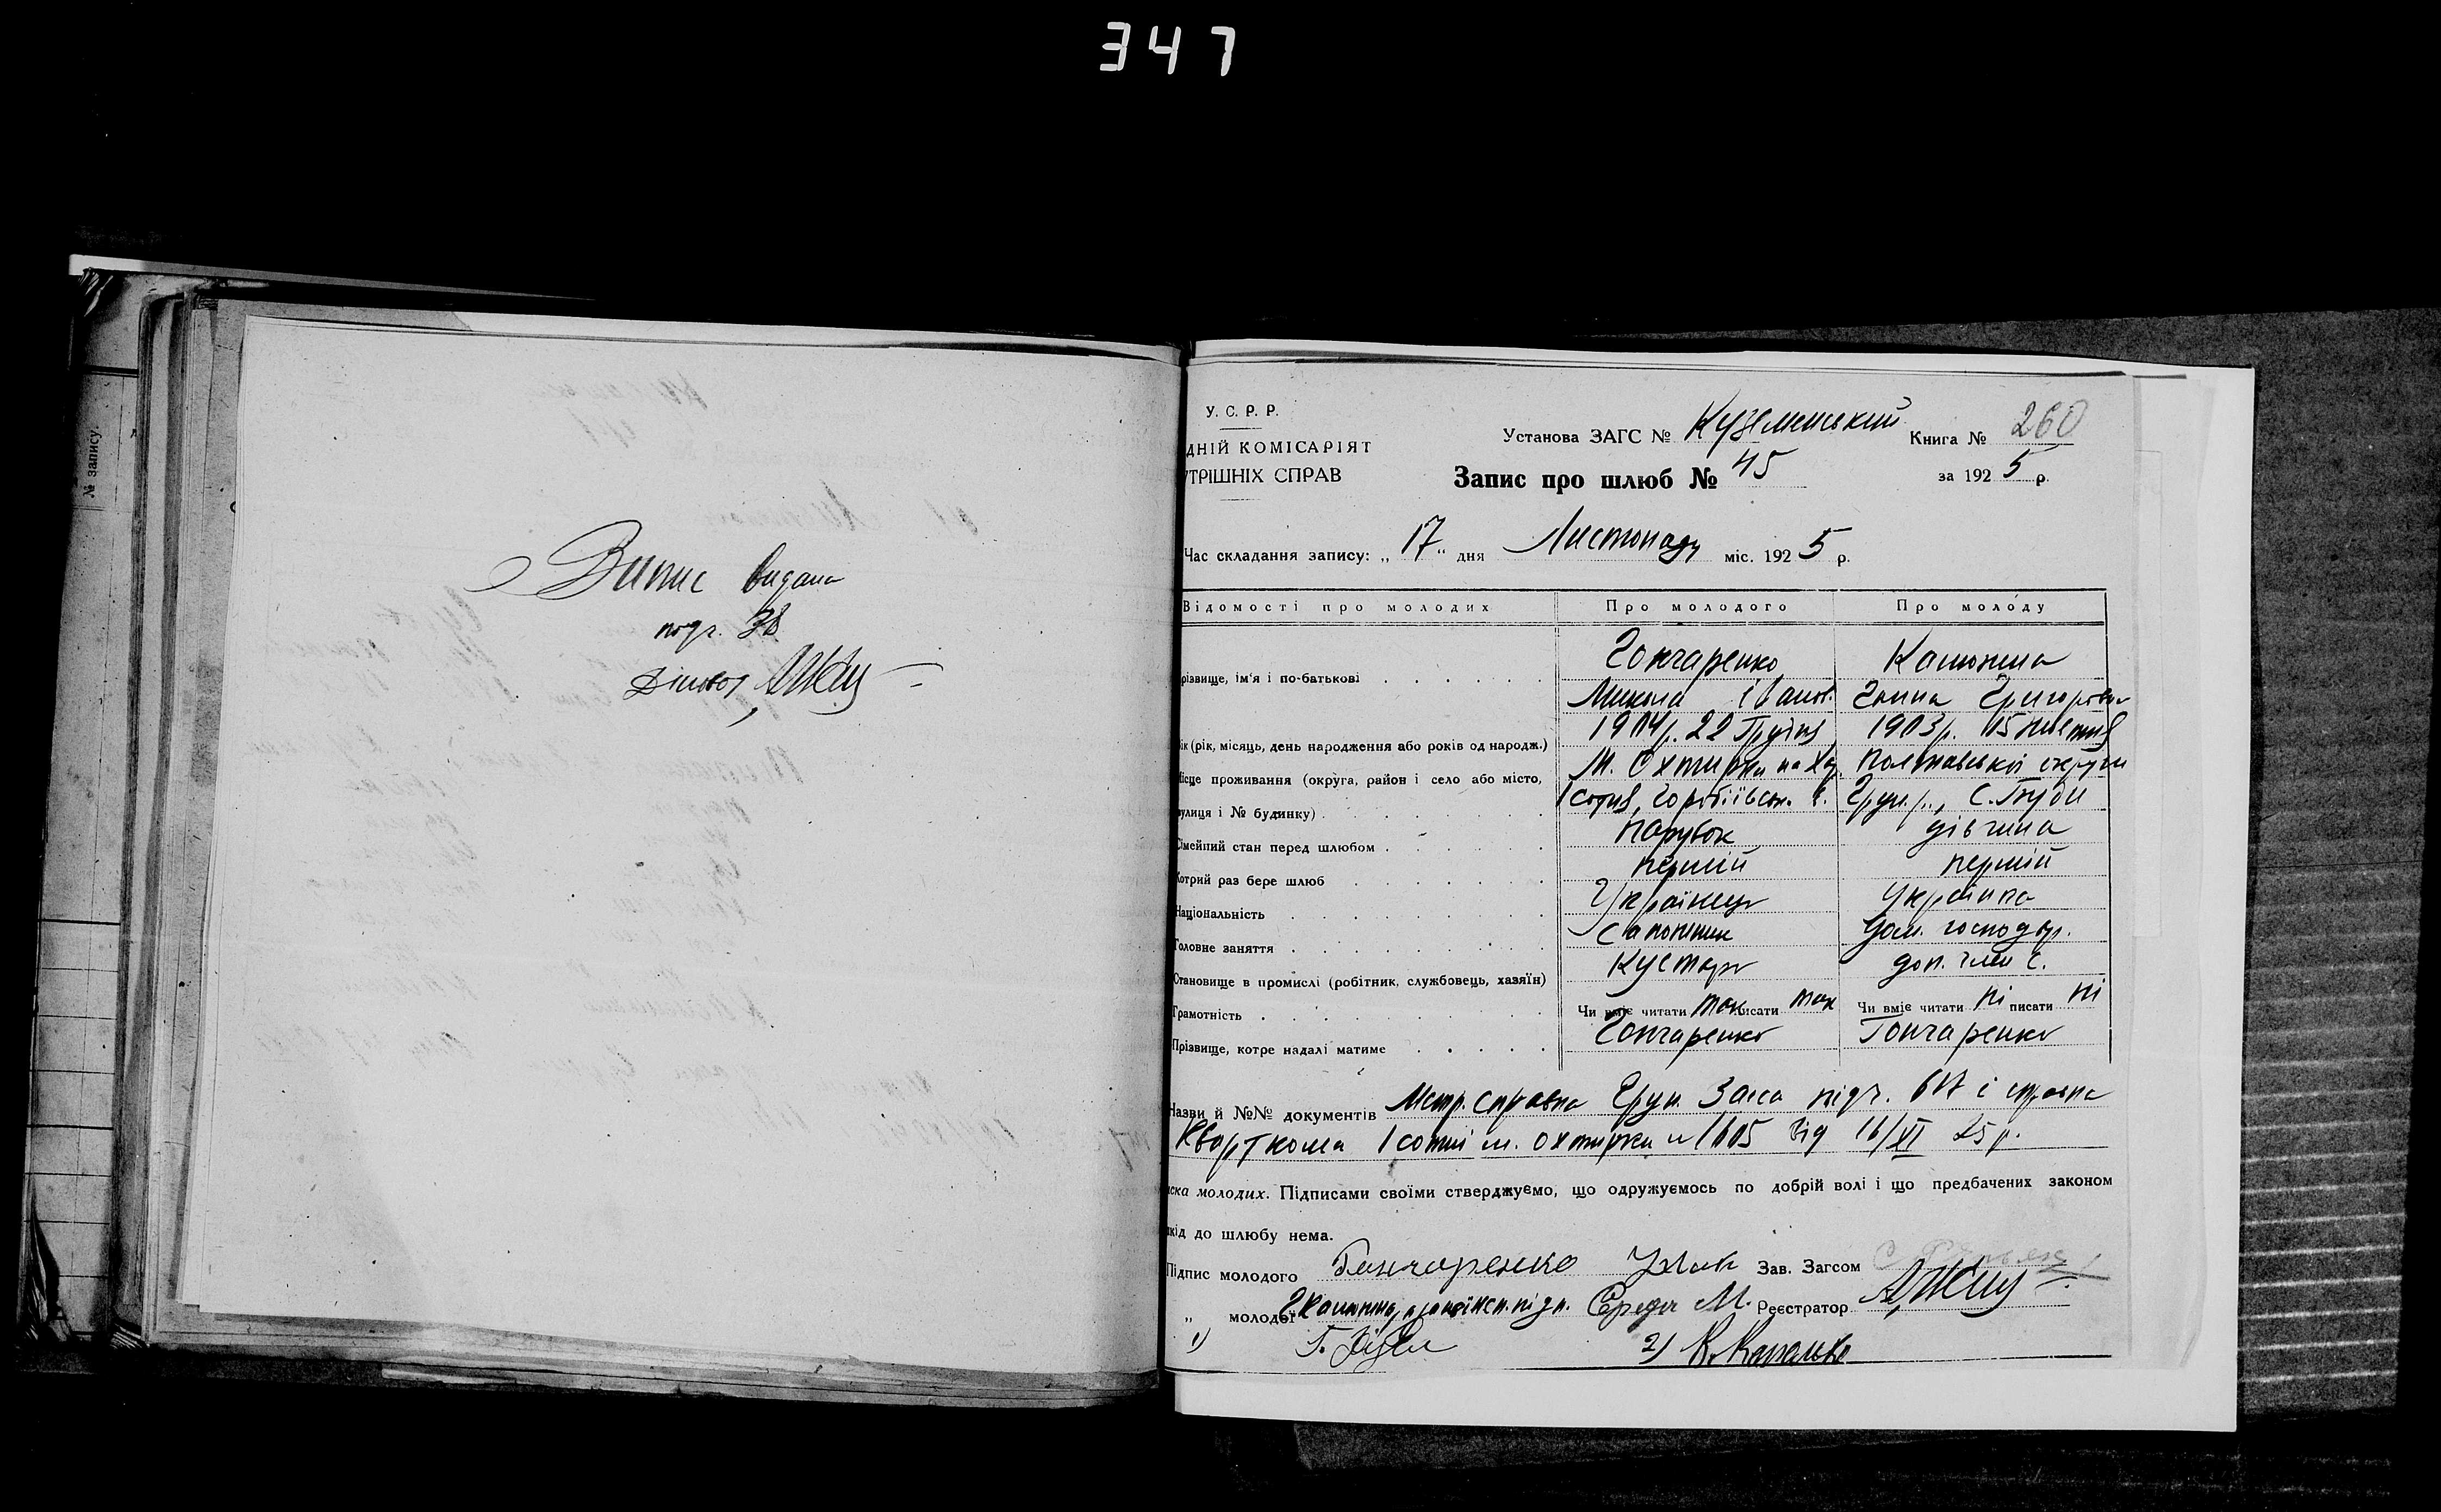 347
№ запису.
Випис видана
підч. 38
Діловод
У. С. Р. Р.
ДНІЙ КОМІСАРІЯТ
УТРІШНІХ СПРАВ
Установа ЗАГС № Куземенський Книга № 260
Запис про шлюб № 45 за 1925 р.
Час складання запису: „17" дня Листопаду міс. 1925 р.
Відомості про молодих Про молодого Про молоду
різвище, ім'я і по-батькові Гончаренко Калюжна
Микола Іванов. Ганна Григорівна
ік (рік, місяць, день народження або років од народж.) 1904р. 22 Грудня 1903р. 15 жовтня
Місце проживання (округа, район і село або місто, М. Охтирка на Хар. Полтавської округи
вулиця і № будинку) 1 сотня, Грун. р., С. Буди
Сімейний стан перед шлюбом парубок дівчина
Котрий раз бере шлюб перший перший
Національність Українець Українка
Головне заняття Сапожник Дом. господар.
Становище в промислі (робітник, службовець, хазяїн) Кустарь доп. член с.
Грамотність Чи вміє читати так писати так Чи вміє читати ні писати ні
Прізвище, котре надалі матиме Гончаренко Гончаренко
Назви й №№ документів Метр. справка Грун. Загса підч. 617 і справка
Кварткома 1 сотні м. Охтирки № 1605 від 16/XI 25 р.
иска молодих. Підписами своїми стверджуємо, що одружуємось по добрій волі і що предбачених законом
шкід до шлюбу нема.
Підпис молодого Гончаренко Зав. Загсом
„ молодої Г Калюжна, а за неї неп. підп. Середа М. Реєстратор
1) Г. 2) К.